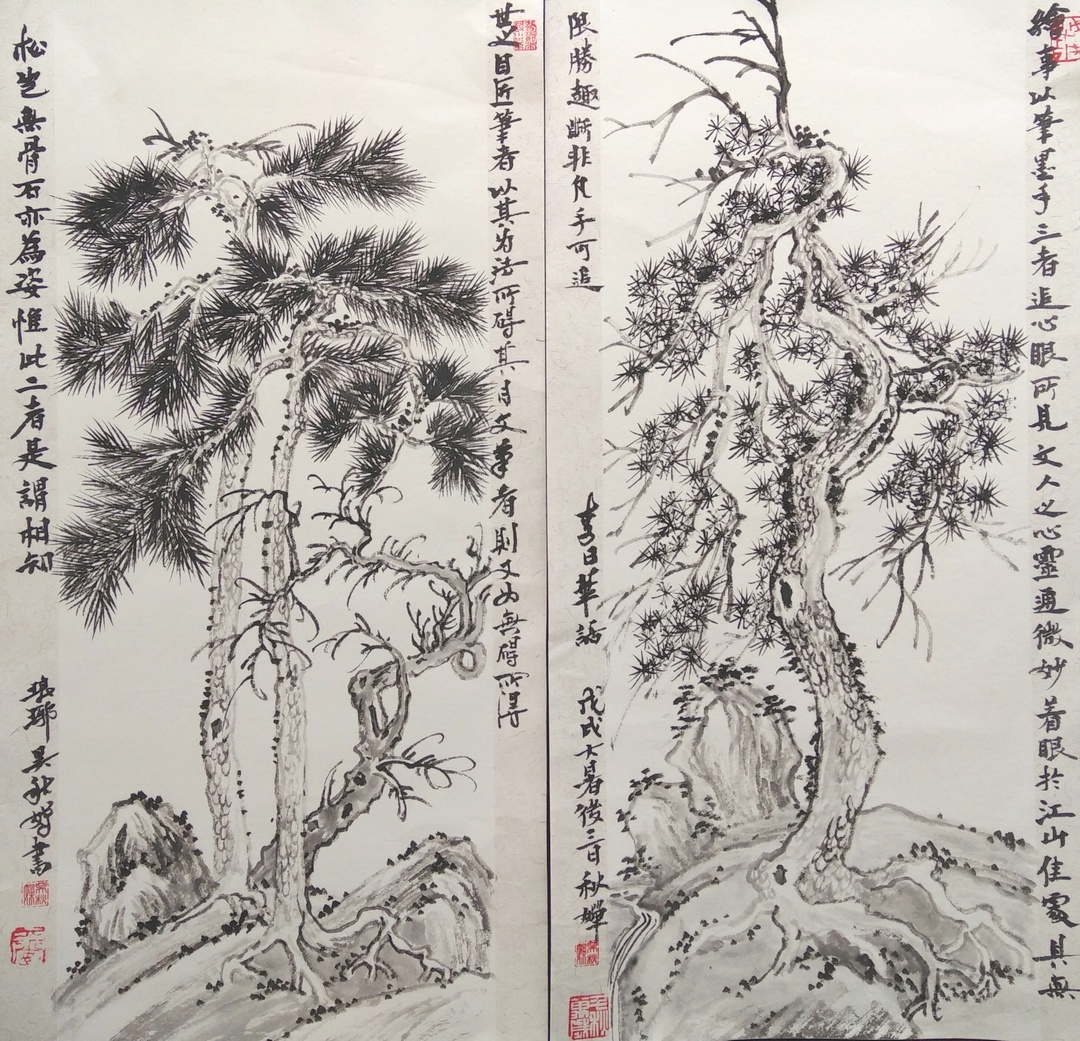 繪事以筆墨手三者追心眼所見文人之心靈通微妙着眼於江山佳處具無
限勝趣斷非凡手可追
李日華語
戊戌大暑後三日秋嬋
世之目匠筆者以其為法所碍其目文筆者則又為無碍所得
松豈無骨石亦為姿惟此二者是謂相知
琅琊吴秋嬋書